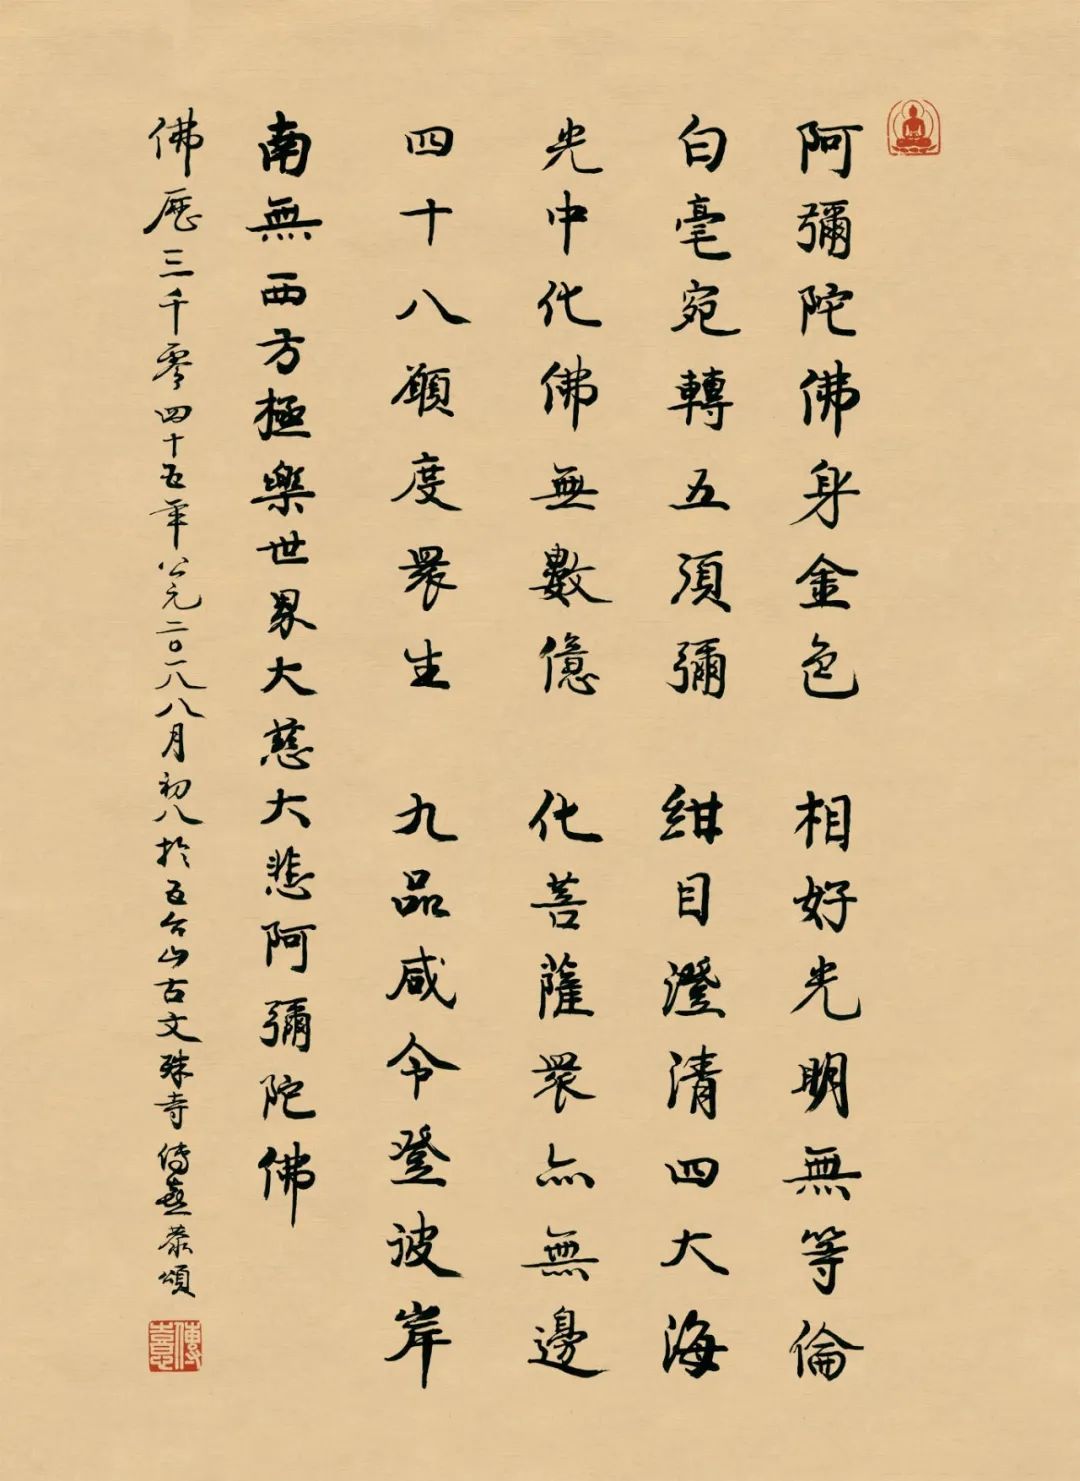 阿彌陀佛身金色 相好光明無等倫
白毫宛轉五須彌 紺目澄清四大海
光中化佛無數億 化菩薩眾亦無邊
四十八願度眾生 九品咸令登彼岸
南無西方極樂世界大慈大悲阿彌陀佛
佛歷三千零四十五年公元二〇一八八月初八於五台山古文殊寺 傳憙恭頌
傳憙